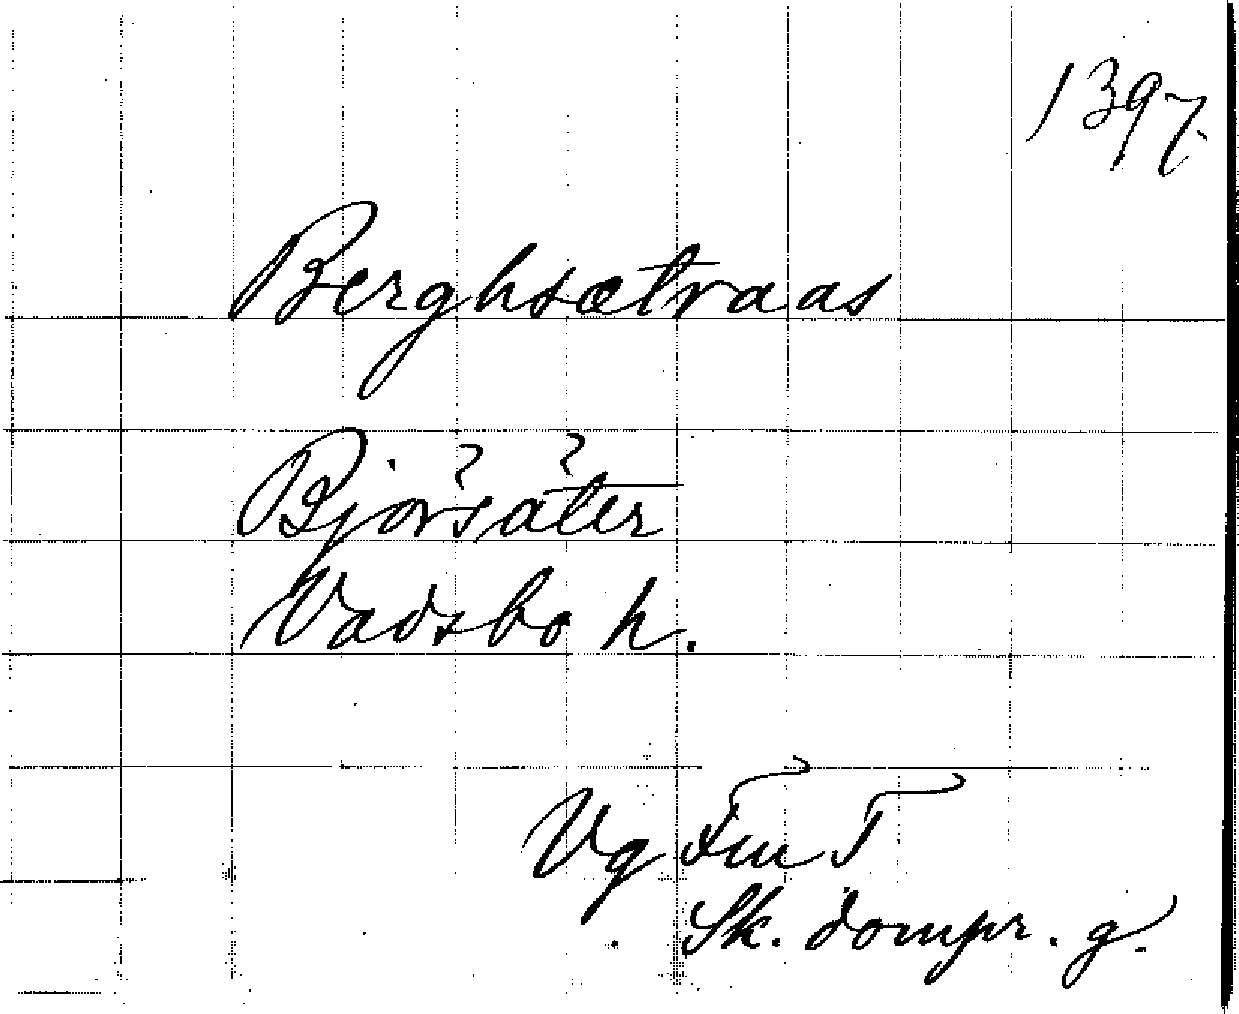 1397.
Berghsætraas
Björsäter
Vadsbo h.
Vg Fm T
Sk. dompr. g.